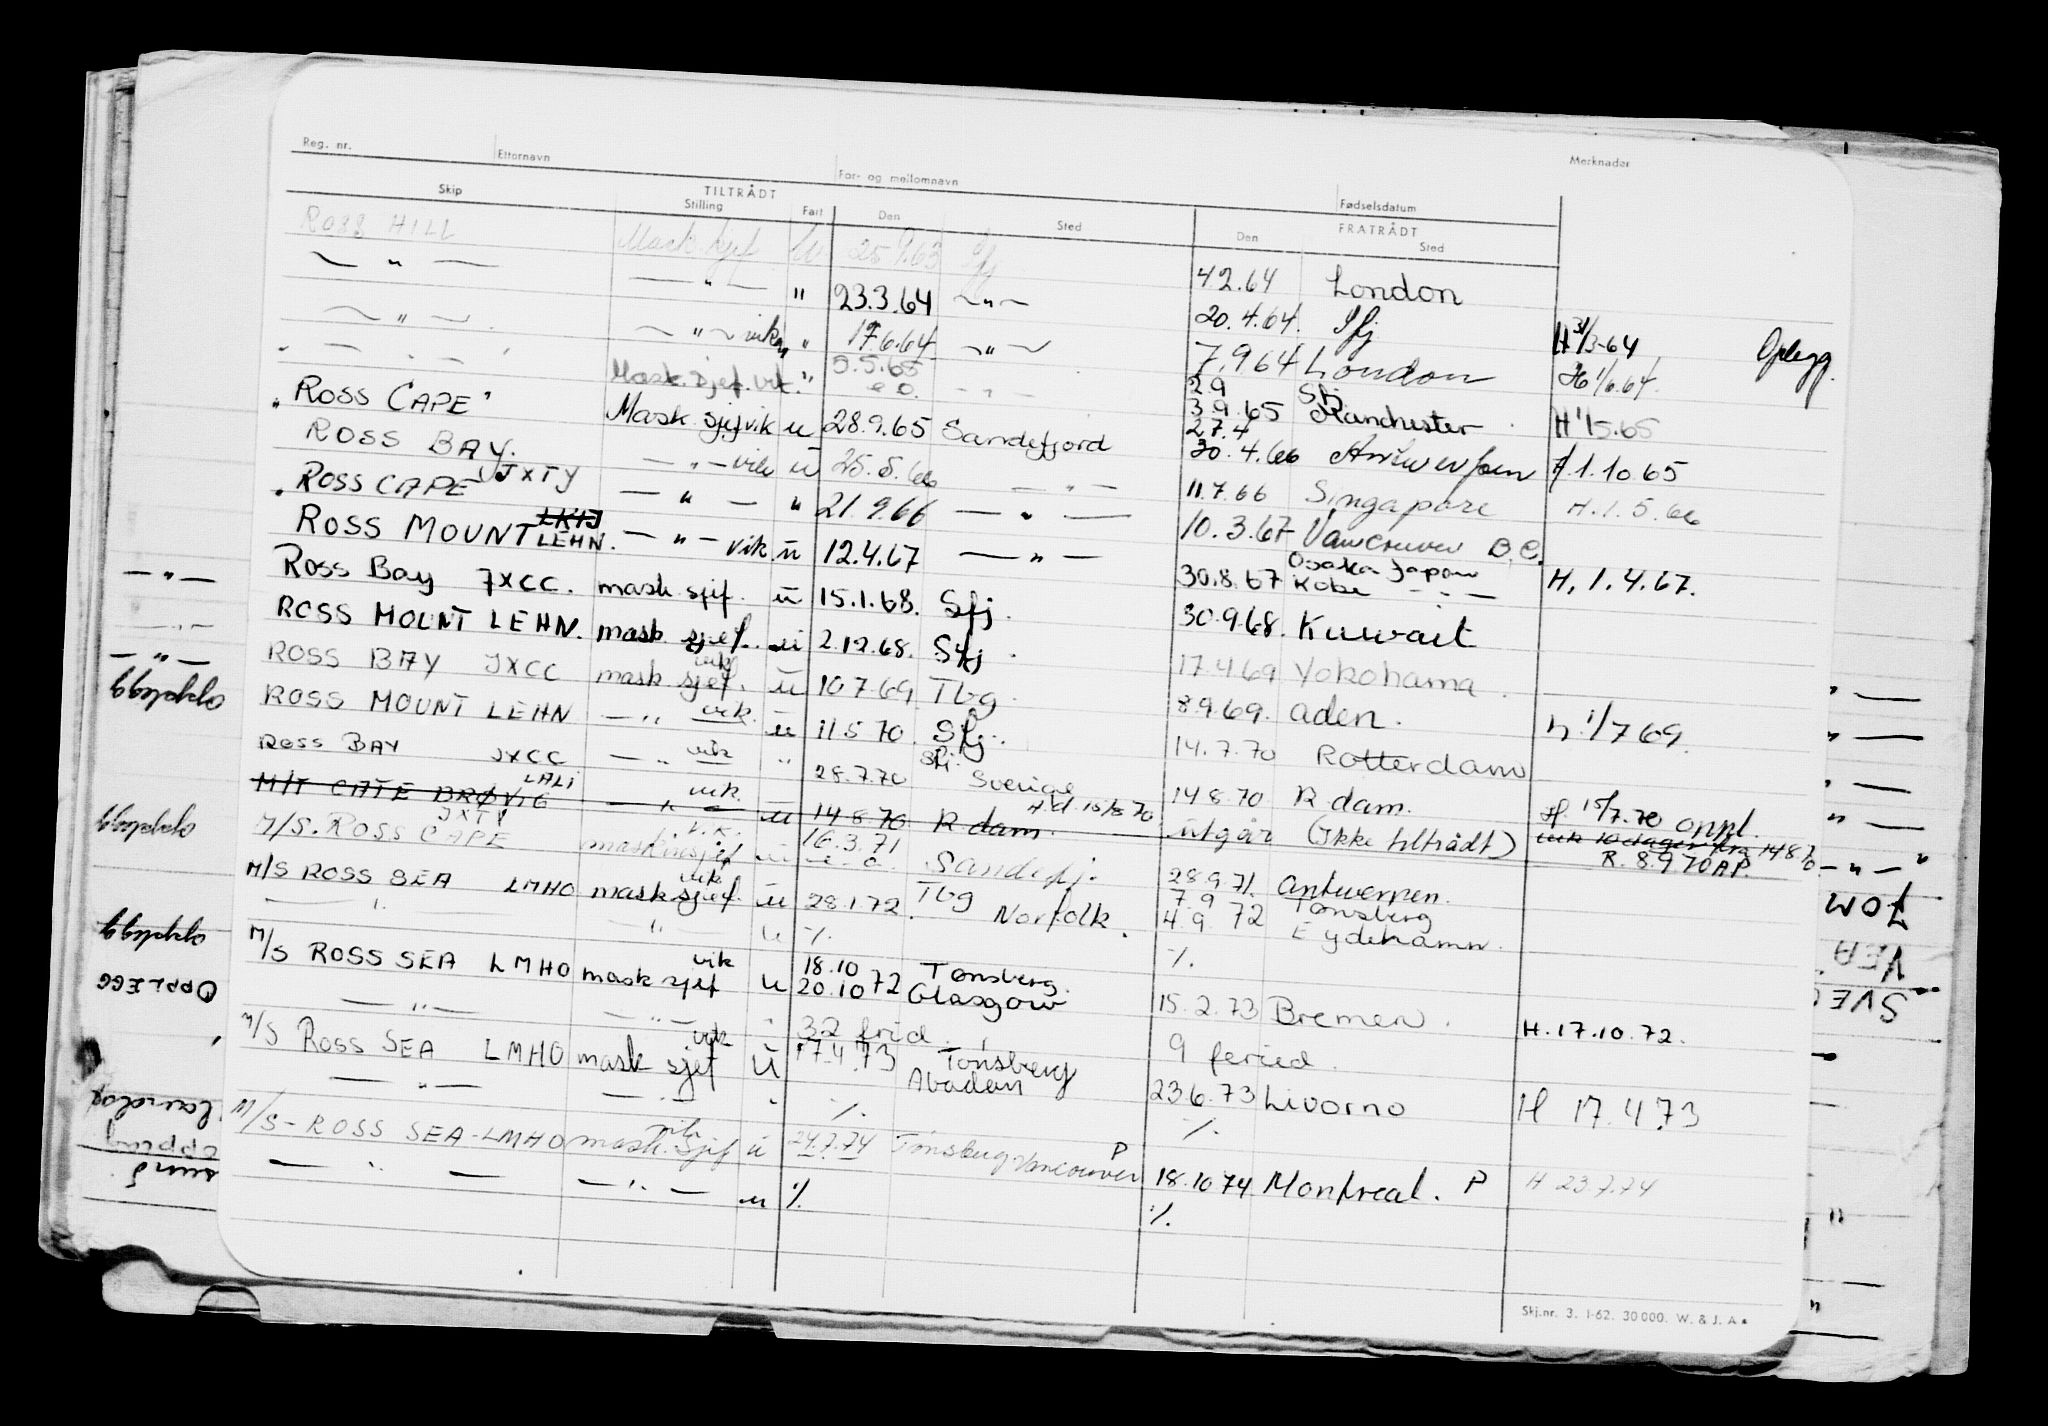 Reg. nr. Etternavn For- og mellomnavn Merknader
Skip TILTRÅDT Fødselsdatum
Stilling Fart Den Sted FRATRÅDT
Den Sted
ROSS HILL Mask.sjef u 25.9.63 Sfj 4.2.64 London
— " — — " — " 23.3.64 — " — 20.4.64. Sfj H 31/3-64 Oplegg.
— " — — " — vik " 17.6.64 — " — 7.9.64 London H 1/6.64.
— " — Mask.sjef.vik. " 5.5.65 2.9 Sfj.
3.9.65 Manchester H 1/5.65
ROSS CAPE Mask.sjefvik u 28.9.65 Sandefjord 27.4
30.4.66 Antwerpen H.1.10.65
ROSS BAY. — " — vik u 25.5.66 — " — 11.7.66 Singapore H.1.5.66
JXTY
ROSS CAPE — " — " 21.9.66 — " — 10.3.67 Vancouver B.C.
ROSS MOUNT LEHN. — " — vik u 12.4.67 — " — 30.8.67 Osaka Japan
Kobe — " — H, 1.4.67.
Ross Bay JXCC. mask sjef. u 15.1.68. Sfj. 30.9.68. Kuwait
ROSS MOUNT LEHN. mask sjef. u 2.12.68. Sfj. 17.4.69 Yokohama.
ROSS BAY JXCC mask sjef. vik u 10.7.69 Tbg. 8.9.69. Aden. h. 1/7 69.
ROSS MOUNT LEHN — " — vik. u 11.5.70 Sfj. 14.7.70 Rotterdam
ROSS BAY JXCC — " — vik " 28.7.70 Sfj. Sverige 14.8.70 R dam. H 15/7.70 oppl.
M/T CATE BRØVIG LALI — " — vik. u 14.8.70 R dam. utgår (Ikke tiltrådt)
R. 8.9.70 AP.
M/S. ROSS CAPE JXTY maskinsjef v.k. u 16.3.71 Sandefj. 28.9.71. Antwerpen.
M/S ROSS SEA LMHO mask sjef. vik u 28.1.72. Tbg Norfolk. 7.9 Tønsberg
4.9.72 Eydehamn.
— " — — " — u ./. ./.
M/S ROSS SEA LMHO mask sjef vik u 18.10 Tønsberg.
20.10 72 Glasgow 15.2.73 Bremen. H.17.10.72.
— " — — " — " 32 frid. 9 feried.
M/S ROSS SEA LMHO mask sjef vik u 17.4.73 Tønsberg
Abadan 23.6.73 Livorno H 17.4.73
— " — — " — " ./. ./.
M/S - ROSS SEA - LMHO mask. sjef vik u 24.7.74 Tønsberg Vancouver P 18.10 74 Montreal. P H 23.7.74
— " — — " — u ./. ./.
Skj.nr. 3. 1-62. 30000. W. & J. A
Opplegg
opplegg
opplegg
OPPLEGG